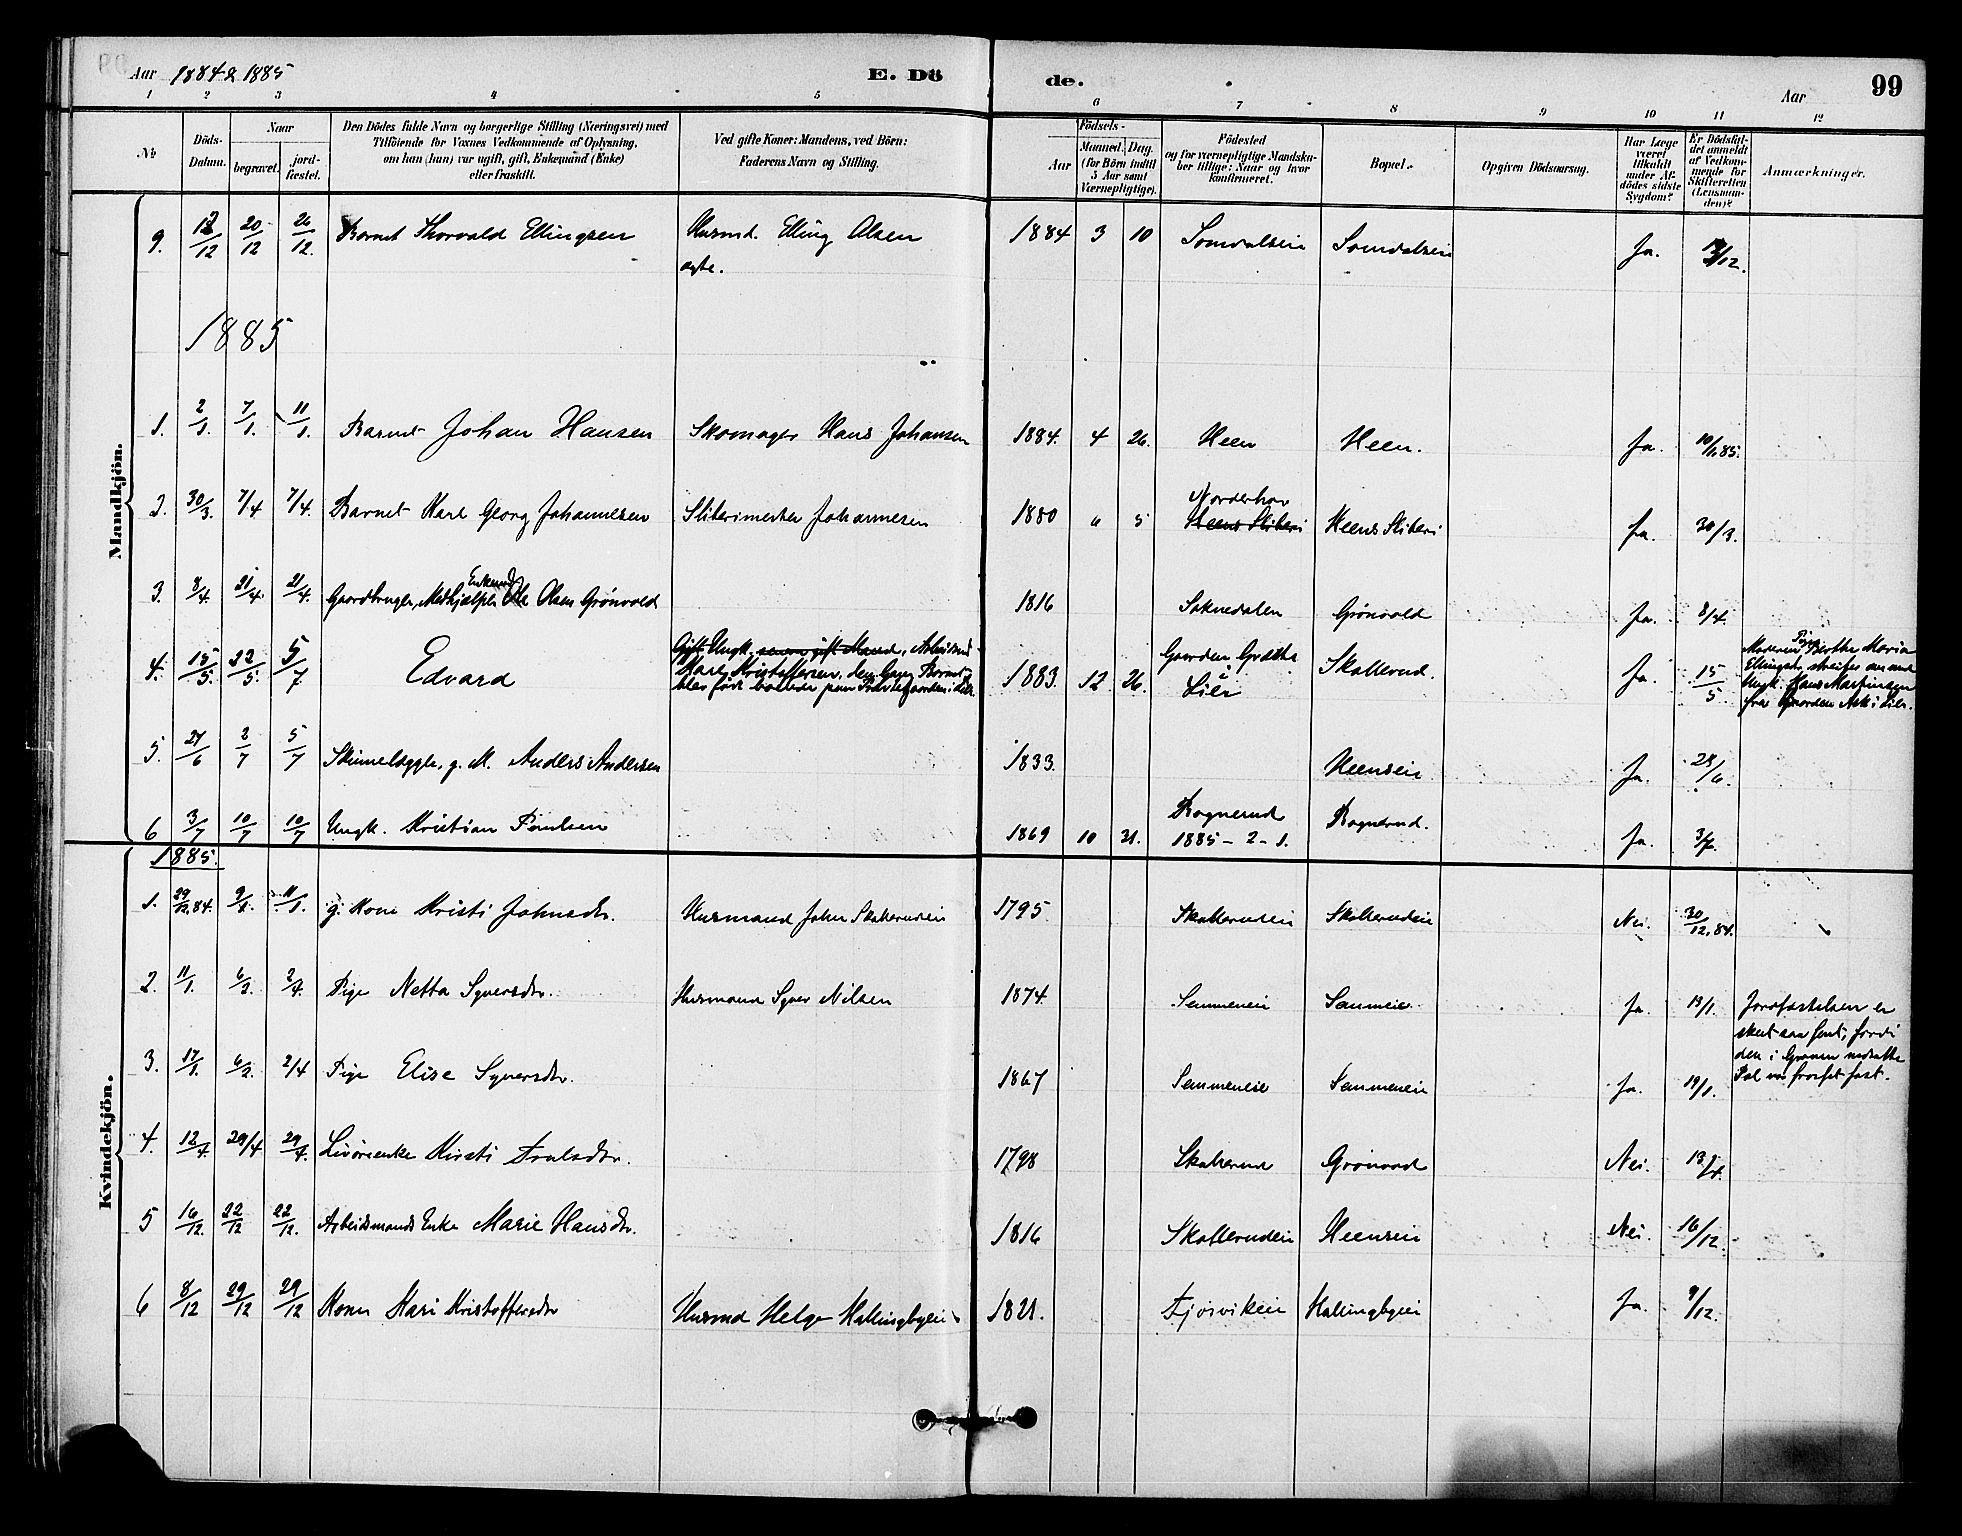 Aar 1884 & 1885 E. Dö de. Aar 99
1 2 3 4 5 6 7 8 9 10 11 12
№ Döds-Datum. Naar begravet. jordfæstet. Den Dödes fulde Navn og borgerlige Stilling (Næringsvei) med Tilföiende for Voxnes Vedkommende af Oplysning, om han (hun) var ugift, gift, Enkemand (Enke) eller fraskilt. Ved gifte Koner: Mandens, ved Börn: Faderens Navn og Stilling. Födsels- Aar Maaned. Dag. (for Börn indtil 5 Aar samt Værnepligtige). Födested og for værnepligtige Mandskaber tillige: Naar og hvor konfirmeret. Bopæl. Opgiven Dödsaarsag. Har Læge været tilkaldt under Afdödes sidste Sygdom? Er Dödsfaldet anmeldt af Vedkommende for Skifteretten (Lensmanden)? Anmærkninger.
Mandkjön.
9. 12/12 20/12 26/12. Barnet Thorvald Ellingsen Husmd. Elling Olsen 1884 3 10 Somdalseie Somdalseie Ja. /12.
ægte.
1885
1. 2/1. 7/1. 11/1. Barnet Johan Hansen Skomager Hans Johansen 1884. 4 26. Heen Heen. Ja. 10/1 85.
2. 30/3. 7/4 7/4. Barnet Karl Georg Johannesen Sliberimester Johannesen 1880 6 5 Norderhov Heens Sliberi Heens Sliberi Ja. 30/3.
3. 8/4. 21/4. 21/4. Gaardbruger, Medhjælper Enkemd Ole Olsen Grönvold 1816 Soknedalen Grönvold Ja. 8/4.
4. 15/5. 22/5. 5/7. Edvard Gift Ungk. senere gift Mand, Arbeidsmd
Karl Kristoffersen, den Gang Barnet
blev född boende paa Præstegaarden i Lier 1883. 12 26. Gaarden Lier Skollerud. Ja. 15/5 Moderen Pige Berthe Maria
Ungk. Hans Martinsen
fra Gaarden Ask i Lier.
5. 27/6 2/7 5/7 g. M. Anders Andersen 1833. Heenseie Ja. 28/6.
6 3/7 10/7 10/7 Ungk. Kristian Paulsen 1869 10 31. Rognerud 1885 - 2 - 1. Rognerud. Ja. 3/7.
Kvindekjön.
1885.
1. 29/12. 84. 9/1. 11/1. g. Kone Kristi Johnsdtr. Husmand John Skollerudeie 1795 Skollerudeie Skollerudeie Nei. 30/12. 84.
2. 11/1. 6/2. 2/4. Pige Netta Syversdtr. Husmand Syver Nilsen 1874. Semmeneie Semmeneie Ja. 13/1. Jordfæstelsen er
skeet saa sent, fordi
den i Graven nedsatte
Pæl var frosset fast.
3. 17/1. 6/2. 2/4 Pige Elise Syversdtr. 1867 Semmeneie Semmeneie Ja. 19/1.
4. 12/4. 29/4 29/4. Livöreenke Kirsti Truls​dtr. 1798 Skollerud Grönvold Nei. 13/4.
5 16/12. 22/12 22/12. Arbeidsmands Enke Marie Hansdtr. 1816 Skollerudeie Heenseie Nei. 16/12.
6 8/12 29/12 29/12 Kone Kari Kristoffersdtr Husmd Helge Hallingbyeie 1821. Fjösvikeie Hallingbyeie Ja. 9/12.